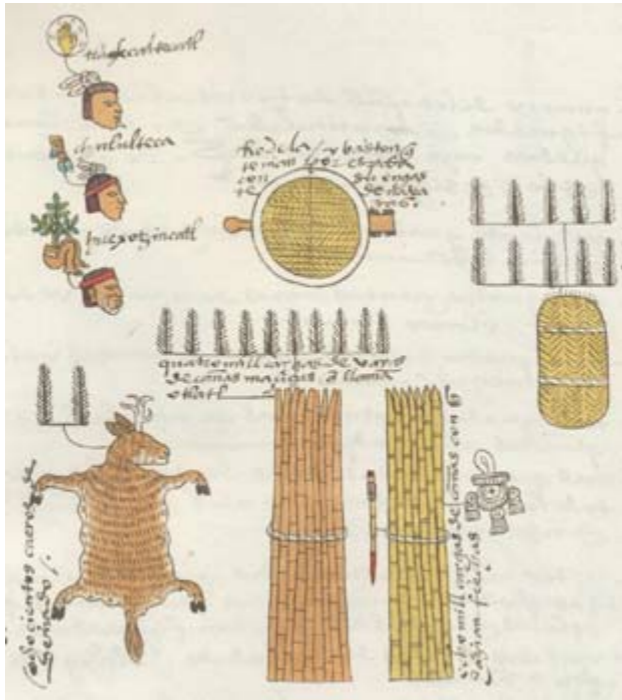 tlaxcaltecatl
chululteca
huexotzincatl
Rodela / y baston q̃
tenian por espada
con
de naba
jas.
quatro mill cargas de varas
de cañas maçiças q̃ llama
otlatl
ochocientos cueros de
venados /.
ocho mill cargas de cañas con q̃
haçian flechas